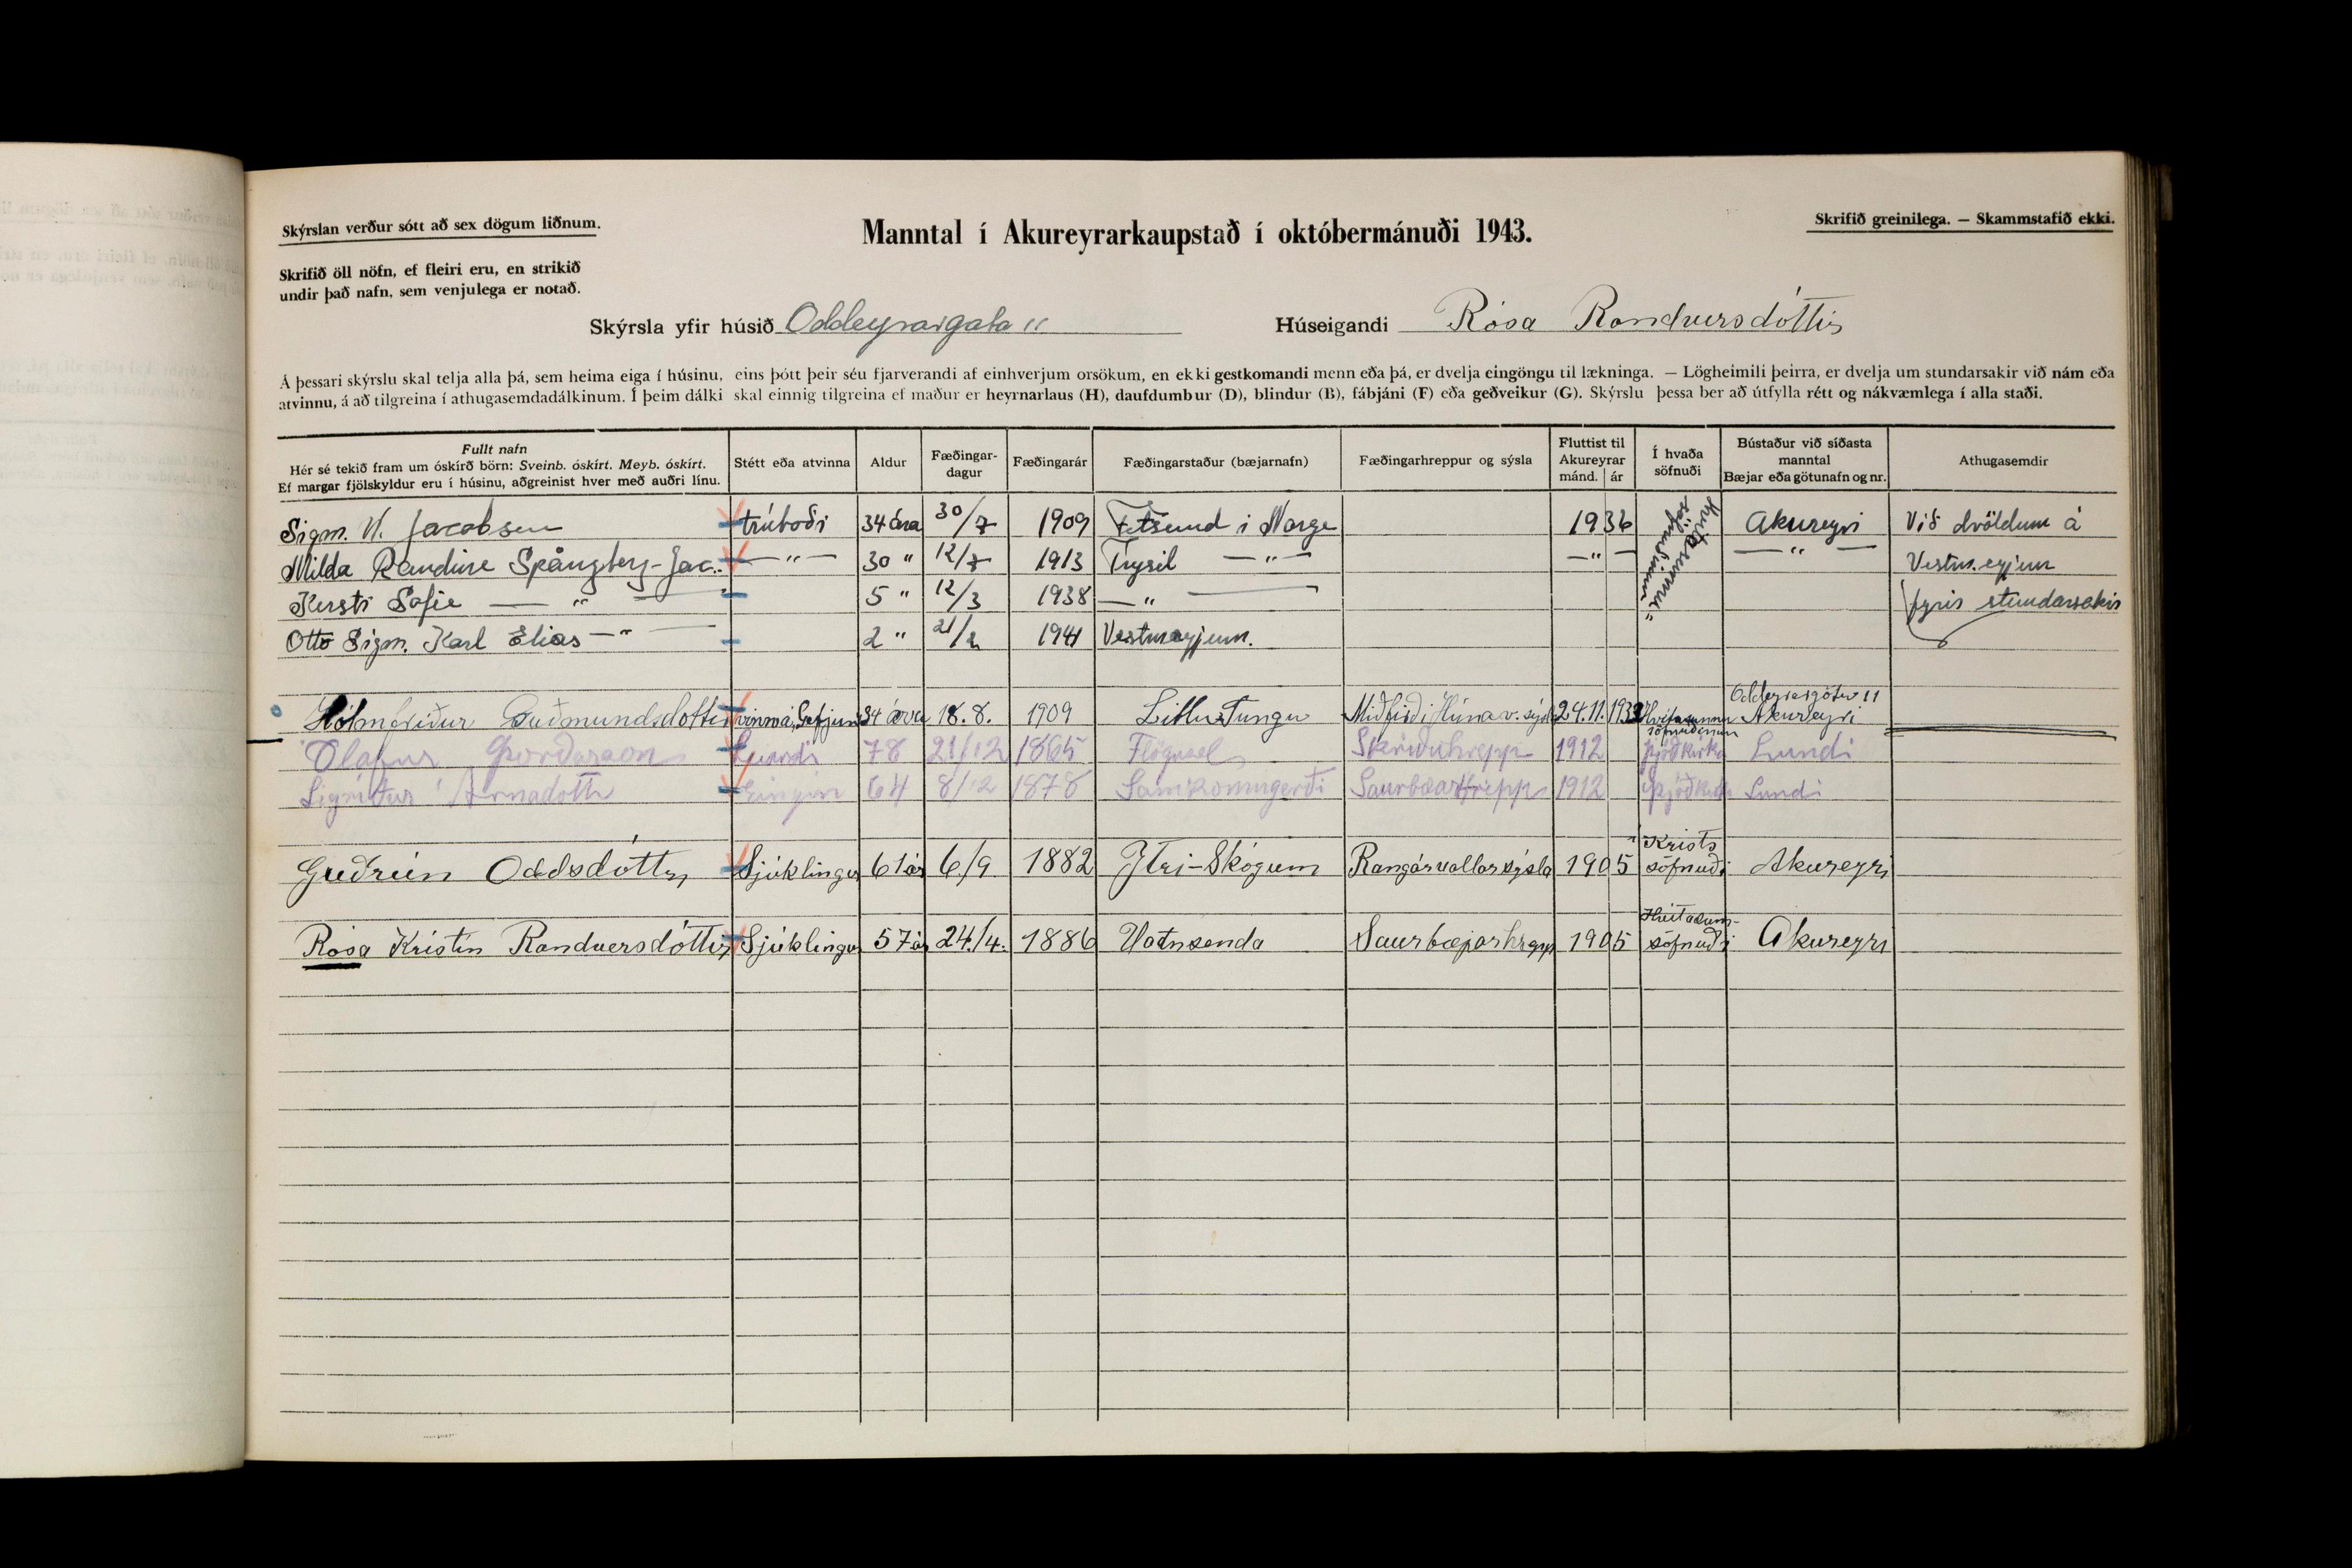 Skýrslan verður sótt að sex dögum liðnum.
Manntal í Akureyrarkaupstað í októbermánuði 1943.
Skrifið greinilega. — Skammstafið ekki.
Skrifið öll nöfn, ef fleiri eru, en strikið
undir það nafn, sem venjulega er notað.
Skýrsla yfir húsið Oddeyrargata 11 Húseigandi Rósa Randversdóttir
Á þessari skýrslu skal telja alla þá, sem heima eiga í húsinu, eins þótt þeir séu fjarverandi af einhverjum orsökum, en ekki gestkomandi menn eða þá, er dvelja eingöngu til lækninga. — Lögheimili þeirra, er dvelja um stundarsakir við nám eða
atvinnu, á að tilgreina í athugasemdadálkinum. Í þeim dálki skal einnig tilgreina ef maður er heyrnarlaus (H), daufdumbur (D), blindur (B), fábjáni (F) eða geðveikur (G). Skýrslu þessa ber að útfylla rétt og nákvæmlega í alla staði.
Fullt nafn
Hér sé tekið fram um óskírð börn: Sveinb. óskírt. Meyb. óskírt.
Ef margar fjölskyldur eru í húsinu, aðgreinist hver með auðri línu.
Stétt eða atvinna
Aldur
Fæðingar-
dagur
Fæðingarár
Fæðingarstaður (bæjarnafn)
Fæðingarhreppur og sýsla
Fluttist til
Akureyrar
mánd. ár
Í hvaða
söfnuði
Bústaður við síðasta
manntal
Bæjar eða götunafn og nr.
Athugasemdir
Sigm. N. Jacobsen trúboði 34 ára 30/7 1909 Fetsund i Norge 1936 Akureyri Við dvöldum á
Milda Randine Spångberg-Jac. —"— 30 " 12/7 1913 Trysil —"— —"— —"— Vestm.eyjum
Kersti Sofie —"— 5 " 12/3 1938 —"— fyrir stundarsakir
Otto Sigm. Karl Elias —"— 2 " 21/2 1941 Vestmeyjum.
Hvítasunnu
söfnuðinum
Oddeyrargötu 11
Hólmfríður Guðmundsdóttir vinna á Gefjuni 34 ára 18.8. 1909 Litlu Tungu Miðfirði Húnav. sýslu 24.11. Hvítasunnu Akureyri
söfnuðinum
Ólafur Þorðarson 78 21/12 1865 Flögusel Skriðuhrepp 1912 Þjóðkirkj Lundi
Sigríður Arnadottir Eingin 64 8/12 1878 Samkomugerði Saurbæarhrepp 1912 Lundi
Krists
Guðrún Oddsdóttir Sjúklingur 61 ár 6/9 1882 Ytri-Skógum Rangárvallarsýsla 1905 söfnuði Akureyri
Hvítasunn-
Rósa Kristín Randversdóttir Sjúklingur 57 ár 24./4. 1886 Vatnsenda Saurbæjarhrepp 1905 söfnuði Akureyri